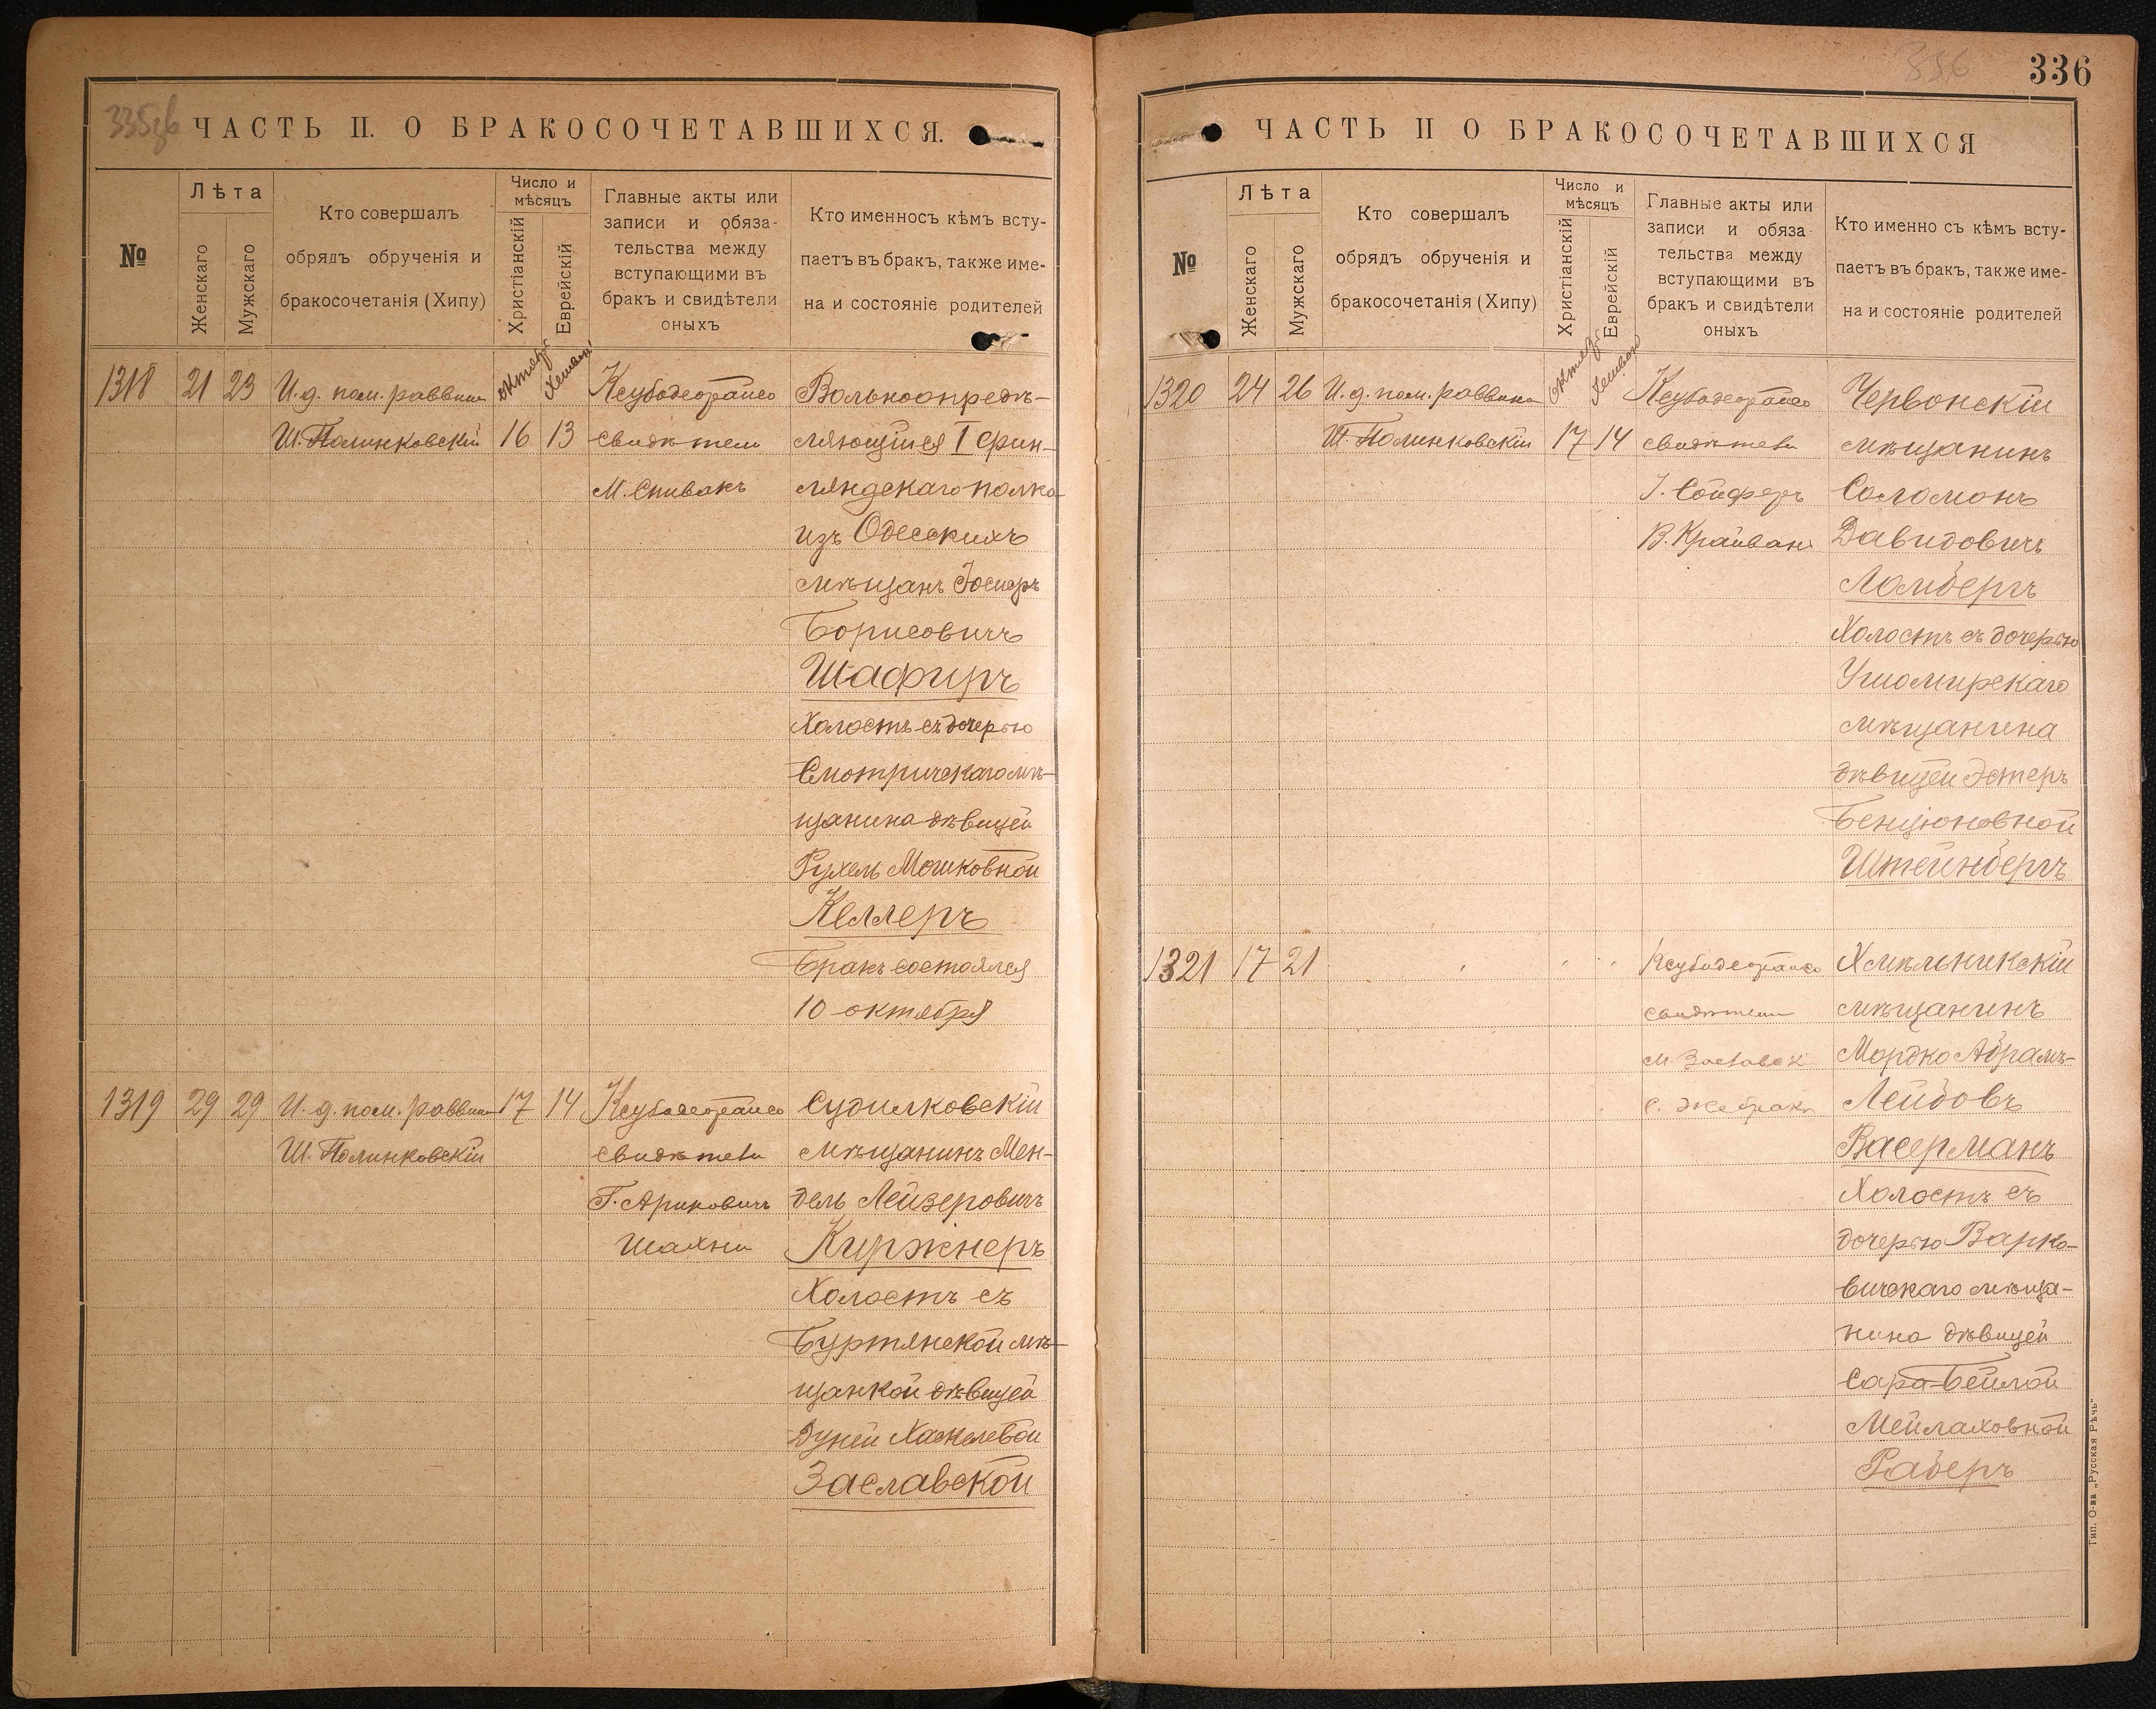 335 об
ЧАСТЬ II. О БРАКОСОЧЕТАВШИХСЯ.
№
Лѣта
Женскаго
Мужскаго
Кто совершалъ
обрядъ обрученія и
бракосочетанія (Хипу)
Число и
мѣсяцъ
Христіанскій
Еврейскій
Главные акты или
записи и обяза-
тельства между
вступающими въ
бракъ и свидѣтели
оныхъ
Кто именносъ кѣмъ всту-
паетъ въ бракъ, также име-
на и состояніе родителей
1318 21 23 И.д. пом. раввина
Ш. Полинковскій
октябрь 16
Хешванъ 13
свидѣтели
М. Спивакъ
Вольноопредѣ-
ляющійся I Фин-
ляндскаго полка
изъ Одесскихъ
мѣщанъ Іосифъ
Борисовичъ
Шафиръ
Холостъ съ дочерью
Смотричскаго мѣ-
щанина дѣвицей
Рухель Мошковной
Келлеръ
Бракъ состоялся
10 октября
1319 29 29 И.д. пом. раввина
Ш. Полинковскій
17 14
свидѣтели
Г. Ариковичъ
Шахни
Судилковскій
мѣщанинъ Мен-
дель Лейзеровичъ
Киржнеръ
Холостъ съ
Буртянской мѣ-
щанкой дѣвицей
Дуней Хаскелевой
Заславской
336
336
ЧАСТЬ II О БРАКОСОЧЕТАВШИХСЯ
№
Лѣта
Женскаго
Мужскаго
Кто совершалъ
обрядъ обрученія и
бракосочетанія (Хипу)
Число и
мѣсяцъ
Христіанскій
Еврейскій
Главные акты или
записи и обяза-
тельства между
вступающими въ
бракъ и свидѣтели
оныхъ
Кто именно съ кѣмъ всту-
паетъ въ бракъ, также име-
на и состояніе родителей
1320 24 26 И.д. пом. раввина
Ш. Полинковскій
октябрь 17
Хешванъ 14
свидѣтели
І. Сойферъ
В. Крайванъ
Червонскій
мѣщанинъ
Соломонъ
Давидовичъ
Ломбергъ
Холостъ съ дочерью
Ушомирскаго
мѣщанина
дѣвицей Эстеръ
Бенціоновной
Штейнбергъ
1321 17 21
свидѣтели
М. Заславск
Хмѣльникскій
мѣщанинъ
Мордко Абрамъ-
Лейбовъ
Васерманъ
Холостъ съ
дочерью Варко-
вичскаго мѣща-
нина дѣвицей
Сара-Бейлой
Мейлаховной
Раберъ
Тип. О-ва „Русская Рѣчь"